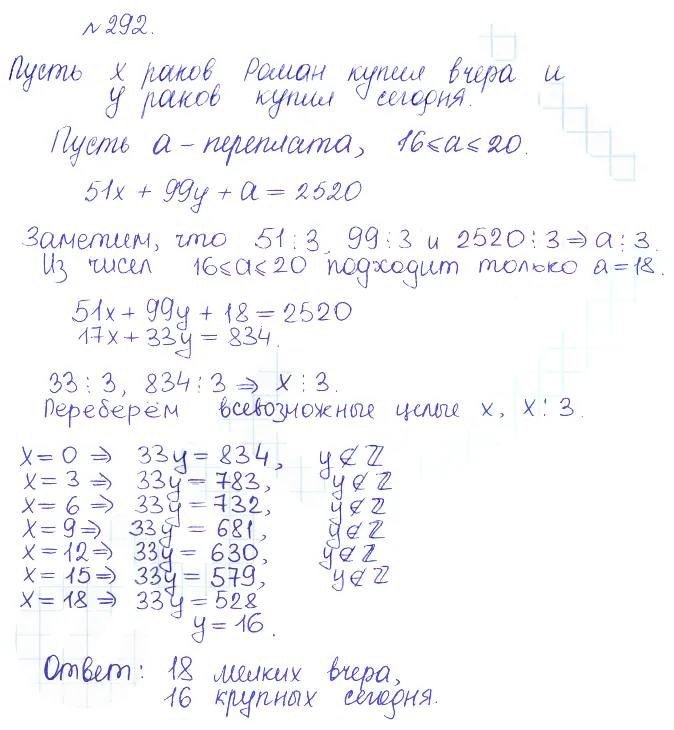 №292.
Пусть x раков Роман купил вчера и
y раков купил сегодня.
Пусть a – переплата, 16⩽a⩽20.
51x + 99y + a = 2520
Заметим, что 51⋮3, 99⋮3 и 2520⋮3 ⇒ a⋮3.
Из чисел 16⩽a⩽20 подходит только a=18.
51x + 99y + 18 = 2520
17x + 33y = 834.
33⋮3, 834⋮3 ⇒ x⋮3.
Переберём всевозможные целые x, x⋮3.
x = 0 ⇒ 33y = 834, y∉ℤ
x = 3 ⇒ 33y = 783, y∉ℤ
x = 6 ⇒ 33y = 732, y∉ℤ
x = 9 ⇒ 33y = 681, y∉ℤ
x = 12 ⇒ 33y = 630, y∉ℤ
x = 15 ⇒ 33y = 579, y∉ℤ
x = 18 ⇒ 33y = 528
y = 16.
Ответ: 18 мелких вчера,
16 крупных сегодня.